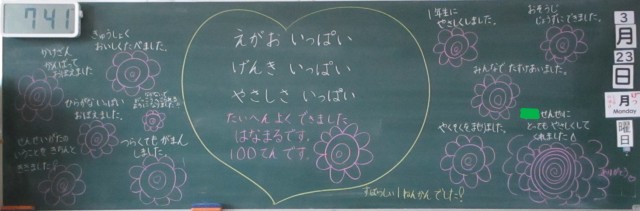 741
きゅうしょく
おいしくたべました。
かけざん
がんばって
おぼえました。
ひらがないっぱい
おぼえました。
せんせいがたの
いうことを きちんと
ききました。
つらくても がまん
しました。
えがお いっぱい
げんき いっぱい
やさしさ いっぱい
たいへん よく できました
はなまるです。
100てんです。
すばらしい1ねんかんでした!!
1年生に
やさしくしました。
おそうじ
じょうずにできました。
みんなで たすけあいました。
やくそくをまもりました。
せんせいに
とっても やさしくして
くれました
ありがとう
3
月
23
日
月
Monday
曜
日